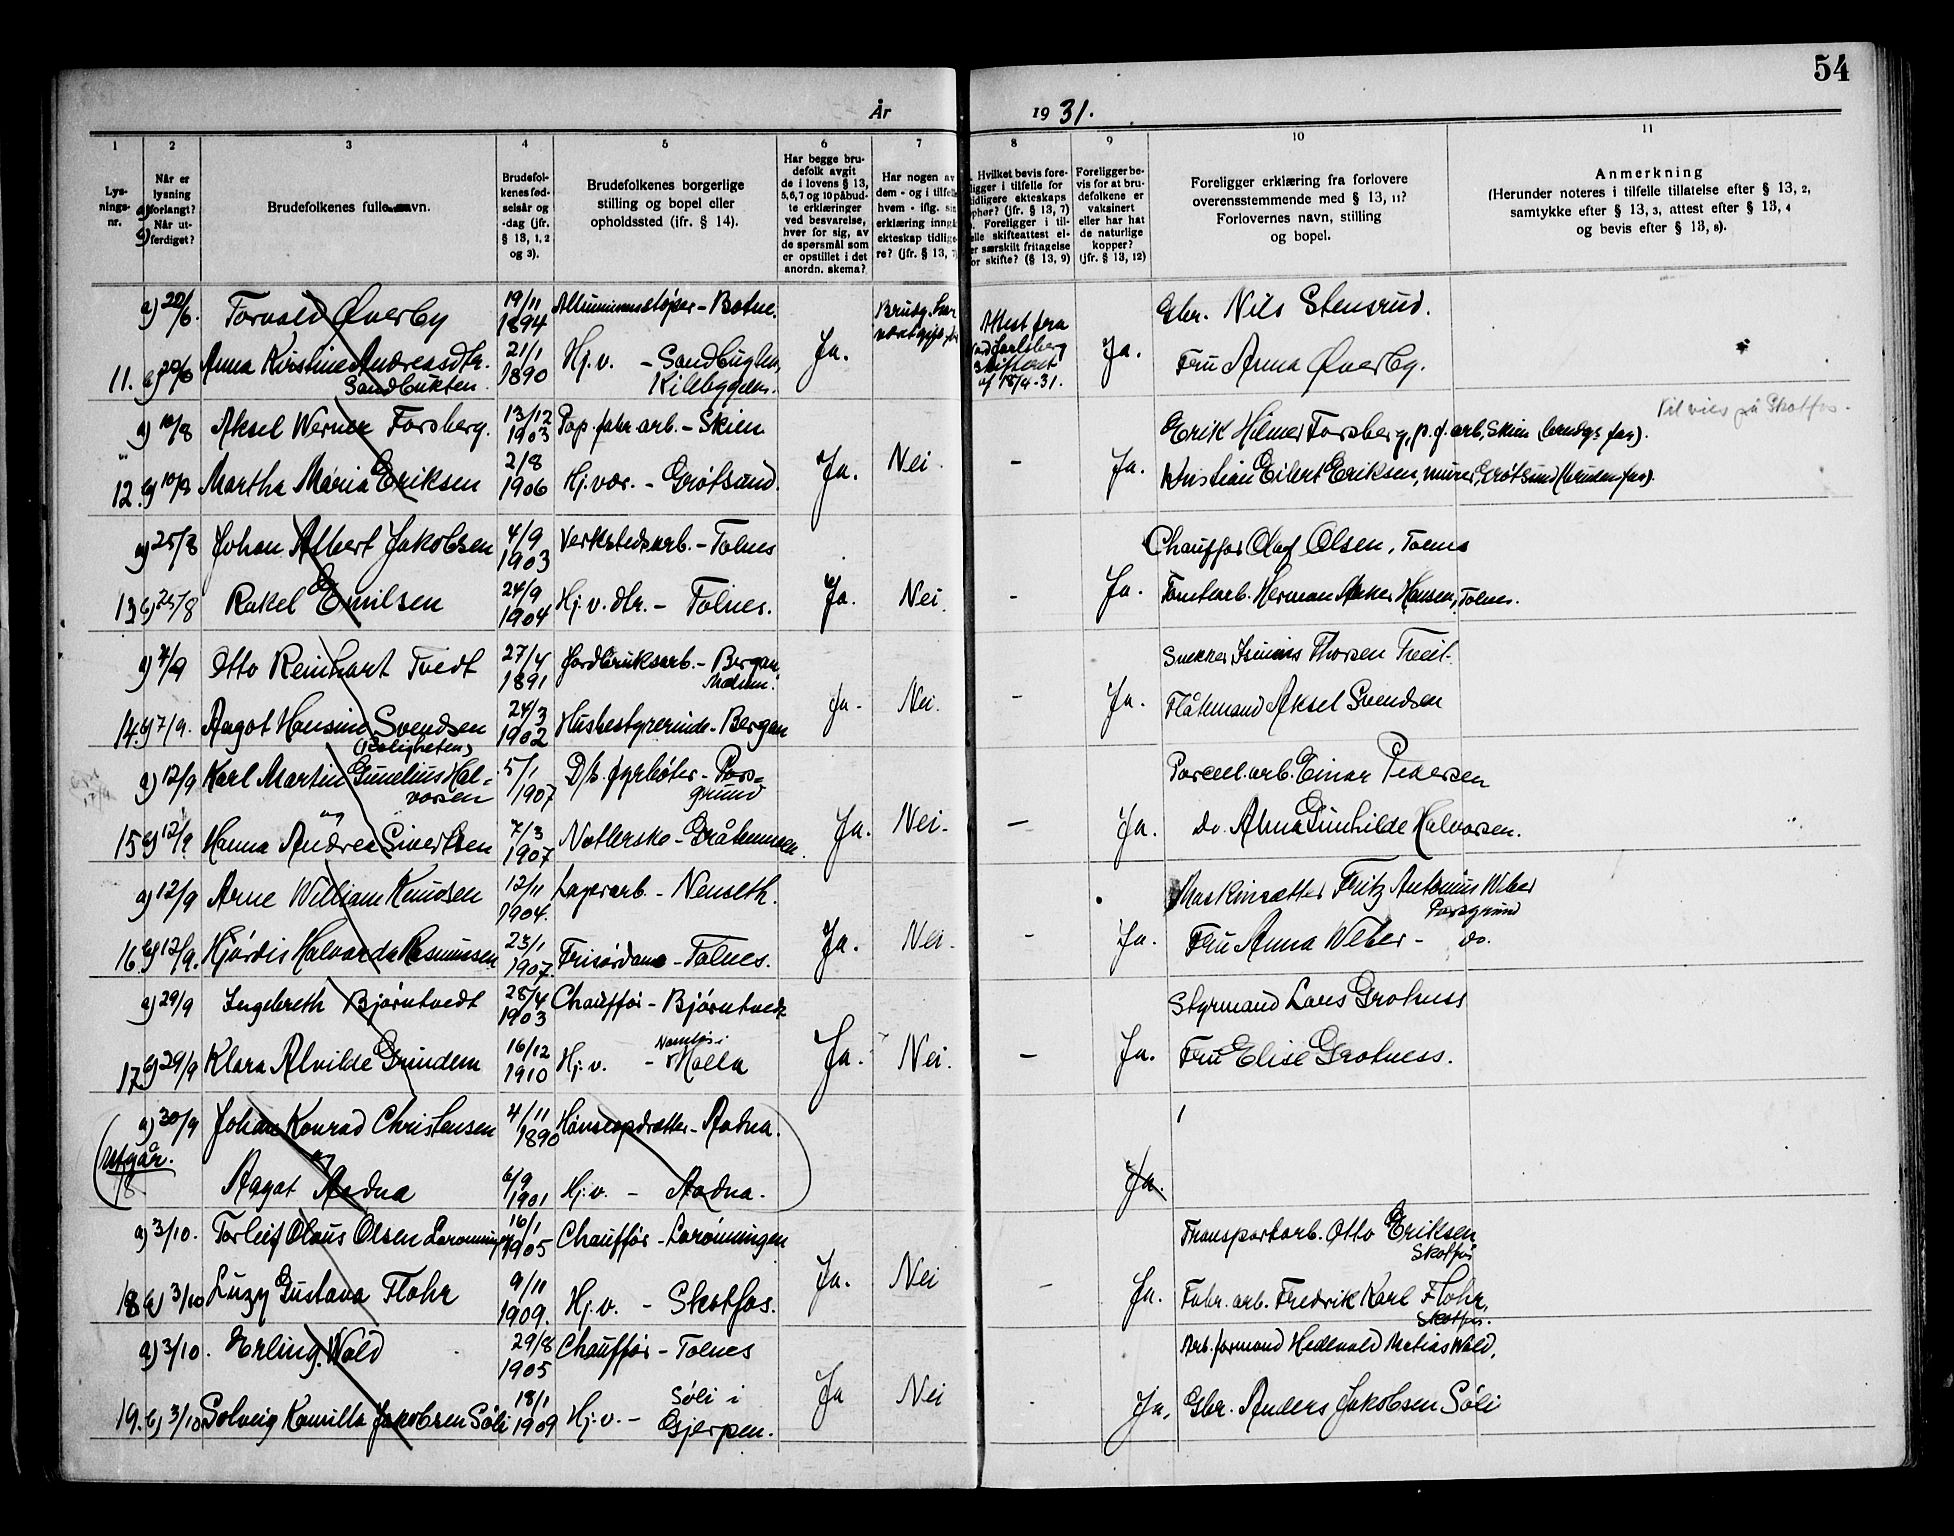 54
År 1931.
1 2 3 4 5 6 7 8 9 10 11
Lys-
nings-
nr.
Når er
lysning
a) forlangt?
Når ut-
b) ferdiget?
Brudefolkenes fulle navn.
Brudefol-
kenes fød-
selsår og
-dag (jfr.
§ 13, 1, 2
og 3).
Brudefolkenes borgerlige
stilling og bopel eller
opholdssted (ifr. § 14).
Har begge bru-
defolk avgit
de i lovens § 13,
5,6,7 og 10 påbud-
te erklæringer
ved besvarelse,
hver for sig, av
de spørsmål som
er opstillet i det
anordn. skema?
Har nogen av
dem - og i tilfelle
hvem - iflg. sin
erklæring inngå
ekteskap tidlige-
re? (jfr. § 13, 7
Hvilket bevis fore-
ligger i tilfelle for
tidligere ekteskaps
ophør? (jfr. § 13, 7)
Foreligger i til-
felle skifteattest el-
er særskilt fritagelse
for skifte? (§ 13, 9)
Foreligger be-
vis for at bru-
defolkene er
vaksinert
eller har hat
de naturlige
kopper?
(jfr. § 13, 12)
Foreligger erklæring fra forlovere
overensstemmende med § 13, 11?
Forlovernes navn, stilling
og bopel.
Anmerkning
(Herunder noteres i tilfelle tillatelse efter § 13, 2,
samtykke efter § 13, 3, attest efter § 13, 4
og bevis efter § 13, 8).
a) 20/6. Torvald Øverby 19/11 1894 Alluminiumstøper - Botne. Gbr. Nils Stensrud.
11. b) 20/6 Anna Kristine Andreasdtr. 21/1 1890 Hj.v. - Sandbugten, Ja. Ja. Fru Anna Øverby.
Sandbukten. Kilebygden.
Attest fra
af 18/4-31.
a) 10/8 Aksel Werner Forsberg. 13/12 1903 Pap.fabr.arb. - Skien. Erik Hilmer Forsberg, p.f.arb, Skien (brudgs far).
12. b) 10/8 Martha Maria Eriksen 2/8 1906 Hj.vær. - Grøtsund. Ja. Nei. - Ja. Kristian Eilert Eriksen, murer, Grøtsund (brudens far).
a) 25/8 Johan Albert Jakobsen 4/9 1903 Verkstedsarb. - Tolnes Chauffør Olaf Olsen, Tolnes
13 b) 25/8 Rakel Emilsen 24/9 1904 Hj.v.dtr. - Tolnes. Ja. Nei. - Ja. Tomtearb. Herman Anker Hansen, Tolnes.
a) 7/9 Otto Reinhart Tvedt 27/4 1891 Jordbruksarb. - Bergan, Snekker Thorsen Tveit.
14. b) 7/9. Aagot Hansine Svendsen 24/3 1902 Husbestyrerinde - Bergan Ja. Nei. - Ja. Flåtemand Aksel Svendsen
(Roligheten)
a) 12/9 Karl Martin Gunelius Hal- 5/1 1907 D/s. fyrbøter - Pors- Porcel.arb. Einar Pedersen
vorsen grund
og
15 b) 12/9 Hanna Andrea Sivertsen 7/3 1907 Gråtenmoen. Ja. Nei. - Ja. do. Alma Gunhilde Halvorsen.
a) 12/9 Arne William Knudsen 12/11 1904. Lagerarb. - Nenseth. Maskinsætter Fritz Antonius Weber
Porsgrund
16. b) 12/9. Hjørdis Halvarda Rasmussen 23/1 1907. Frisørdame - Tolnes. Ja. Nei. - Ja. Fru Anna Weber - do.
a) 29/9 Ingebreth Bjørntvedt 28/4 1903 Chauffør - Bjørntvedt Styrmand Lars Grotness
17 b) 29/9 Klara Alvilde Grindem 16/12 1910 Hj.v. - Namløs i Mælla Ja. Nei. - Ja. Fru Elise Grotness.
a) 30/9 Johan Konrad Christensen 4/11 1890 Hønseopdrætter - Aadna.
Utgår.
og
Aagot Aadna 6/9 1901 Hj.v. - Aadna. Ja.
a) 3/10. Torleif Olaus Olsen Lorømningen 16/1 1905 Chauffør - Lorømningen Transportarb. Otto Eriksen
Skotfos
18 b) 3/10 Luzy Gustava Flohr 9/11 1909. Hj.v. - Skotfos. Ja. Nei - Ja. Fabr.arb. Fredrik Karl Flohr,
Skotfos.
a) 3/10. Erling Wold 29/8 1905 Chauffør - Tolnes Arb.formand Hedevald Matias Wold.
19. b) 3/10 Solveig Kamilla Jakobsen Søli 18/1 1909 Hj.v. - Søli i Gjerpen. Ja Nei Ja. Gbr. Anders Jakobsen Søli